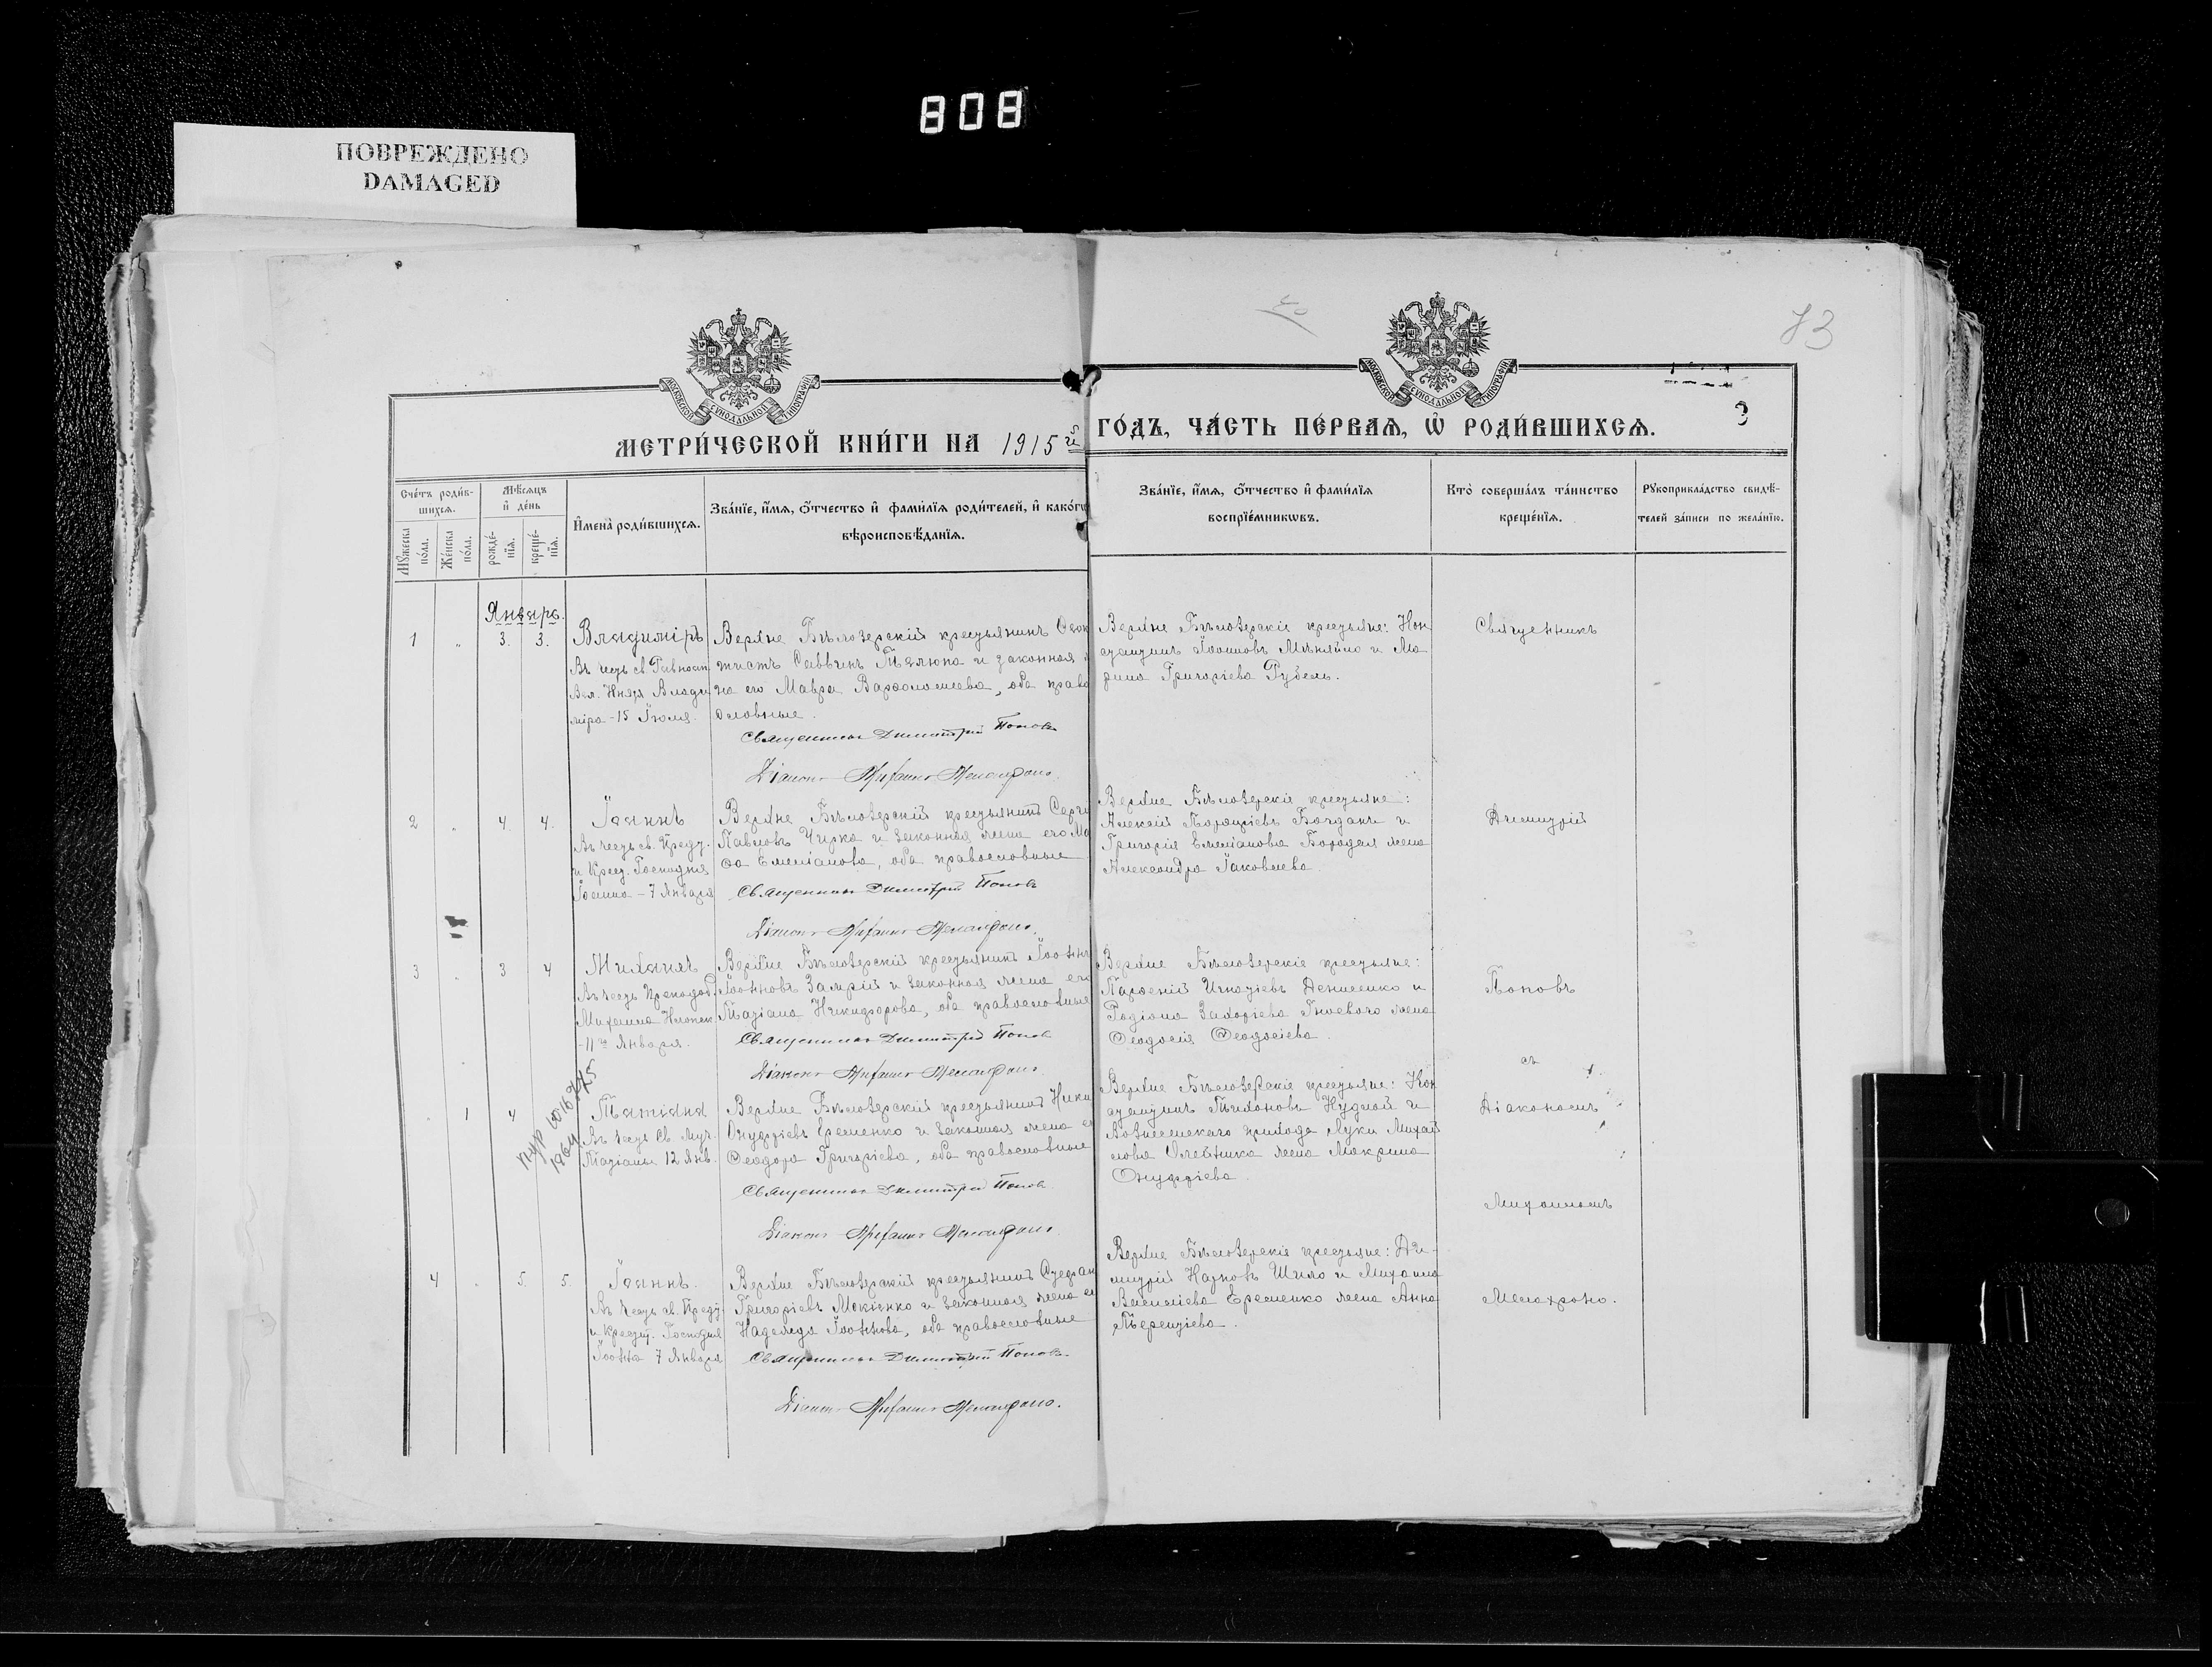 808
ПОВРЕЖДЕНО
DAMAGED
83
3
МОСКОВСКОЙ СѴНОДАЛЬНОЙ ТИПОГРАФІИ
МОСКОВСКОЙ СѴНОДАЛЬНОЙ ТИПОГРАФІИ
МЕТРИ́ЧЕСКОЙ КНИ́ГИ НА 1915й ГО́ДЪ, ЧА́СТЬ ПЕ́РВАЯ, Ѿ РОДИ́ВШИХСЯ.
Сче́тъ роди́в-
шихся.
Мꙋжеска
по́ла.
Же́нска
по́ла.
Мѣ́сяцъ
и҆ де́нь
рожде́-
нїя.
креще́-
нїя.
И҆мена̀ роди́вшихся.
Зва́нїе, и҆́мя, о҆́тчество и҆ фами́лїя роди́телей, и҆ како́гѡ
вѣроисповѣ́данїя.
Зва́нїе, и҆́мя, о҆́тчество и҆ фами́лїя
воспрїе́мникѡвъ.
Кто̀ соверша́лъ та́инство
креще́нїя.
Рꙋкоприкла́дство свидѣ́-
телей за́писи по жела́нїю.
Января.
1 " 3. 3. Владиміръ
Въ честь св. Равноап.
Вел. Князя Влади
міра - 15 Іюля.
Верхне Бѣлозерскій крестьянинъ Ѳеок
тистъ Саввинъ Талюпа и законная ж
на его Мавра Варѳоломеева, оба право
славные.
Священникъ Димитрій Поповъ
Діаконъ Мелахроно.
Верхне Бѣлозерскіе крестьяне: Кон
дратъ Іоанновъ Мѣняйло и Ма
рина Григоріева Рубель.
Священникъ
2 " 4. 4. Іоаннъ
Въ честь св. Предт.
и Крест. Господня
Іоанна - 7 Января
Верхне Бѣлозерскій крестьянинъ Серги
Павловъ Чирка и законная жена его Ма
ѳа Емеліанова, оба православные
Священникъ Димитрій Поповъ
Діаконъ Мелахроно.
Верхне Бѣлозерскіе крестьяне:
Алексій Богданъ и
Григорія Емеліанова Бородая жена
Александра Іаковлева.
Димитрій
3 " 3 4 Михаилъ
Въ честь Преподоб.
Михаила Клопск.
- 11го Января.
Верхне Бѣлозерскій крестьянинъ Іоаннъ
Іоанновъ Замрій и законная жена его
Татіана Никифорова, оба православные
Священникъ Димитрій Поповъ
Діаконъ Мелахроно.
Верхне Бѣлозерскіе крестьяне:
Парѳеній Игнатіевъ Денисенко и
Родіона Захаріева Гноевого жена
Ѳеодосія Ѳеодосіева.
Поповъ
съ
" 1 4 Татіана
Въ честь Св. Муч.
Татіаны 12 Янв.
Верхне Бѣлозерскій крестьянинъ Ники
Онуфріевъ Еременко и законная жена ег
Ѳеодора Григоріева, оба православные
Священникъ Димитрій Поповъ
Діаконъ Мелахроно.
Верхне Бѣлозерскіе крестьяне: Кон
дратъ Тихоновъ Нудной и
Вознесенскаго прихода Луки Михай
лова Олейника жена Макрина
Онуфріева.
Діакономъ
4 " 5. 5. Іоаннъ.
Въ честь св. Предт.
и Крестит. Господня
Іоанна 7 Января
Верхне Бѣлозерскій крестьянинъ Стефан
Григоріевъ Мокіенко и законная жена ег
Надежда Іоаннова, оба православные
Священникъ Димитрій Поповъ
Діаконъ Мелахроно.
Верхне Бѣлозерскіе крестьяне: Ди-
митрій Карповъ Шило и Михаила
Василіева Еременко жена Анна
Терентіева.
Мелахроно.